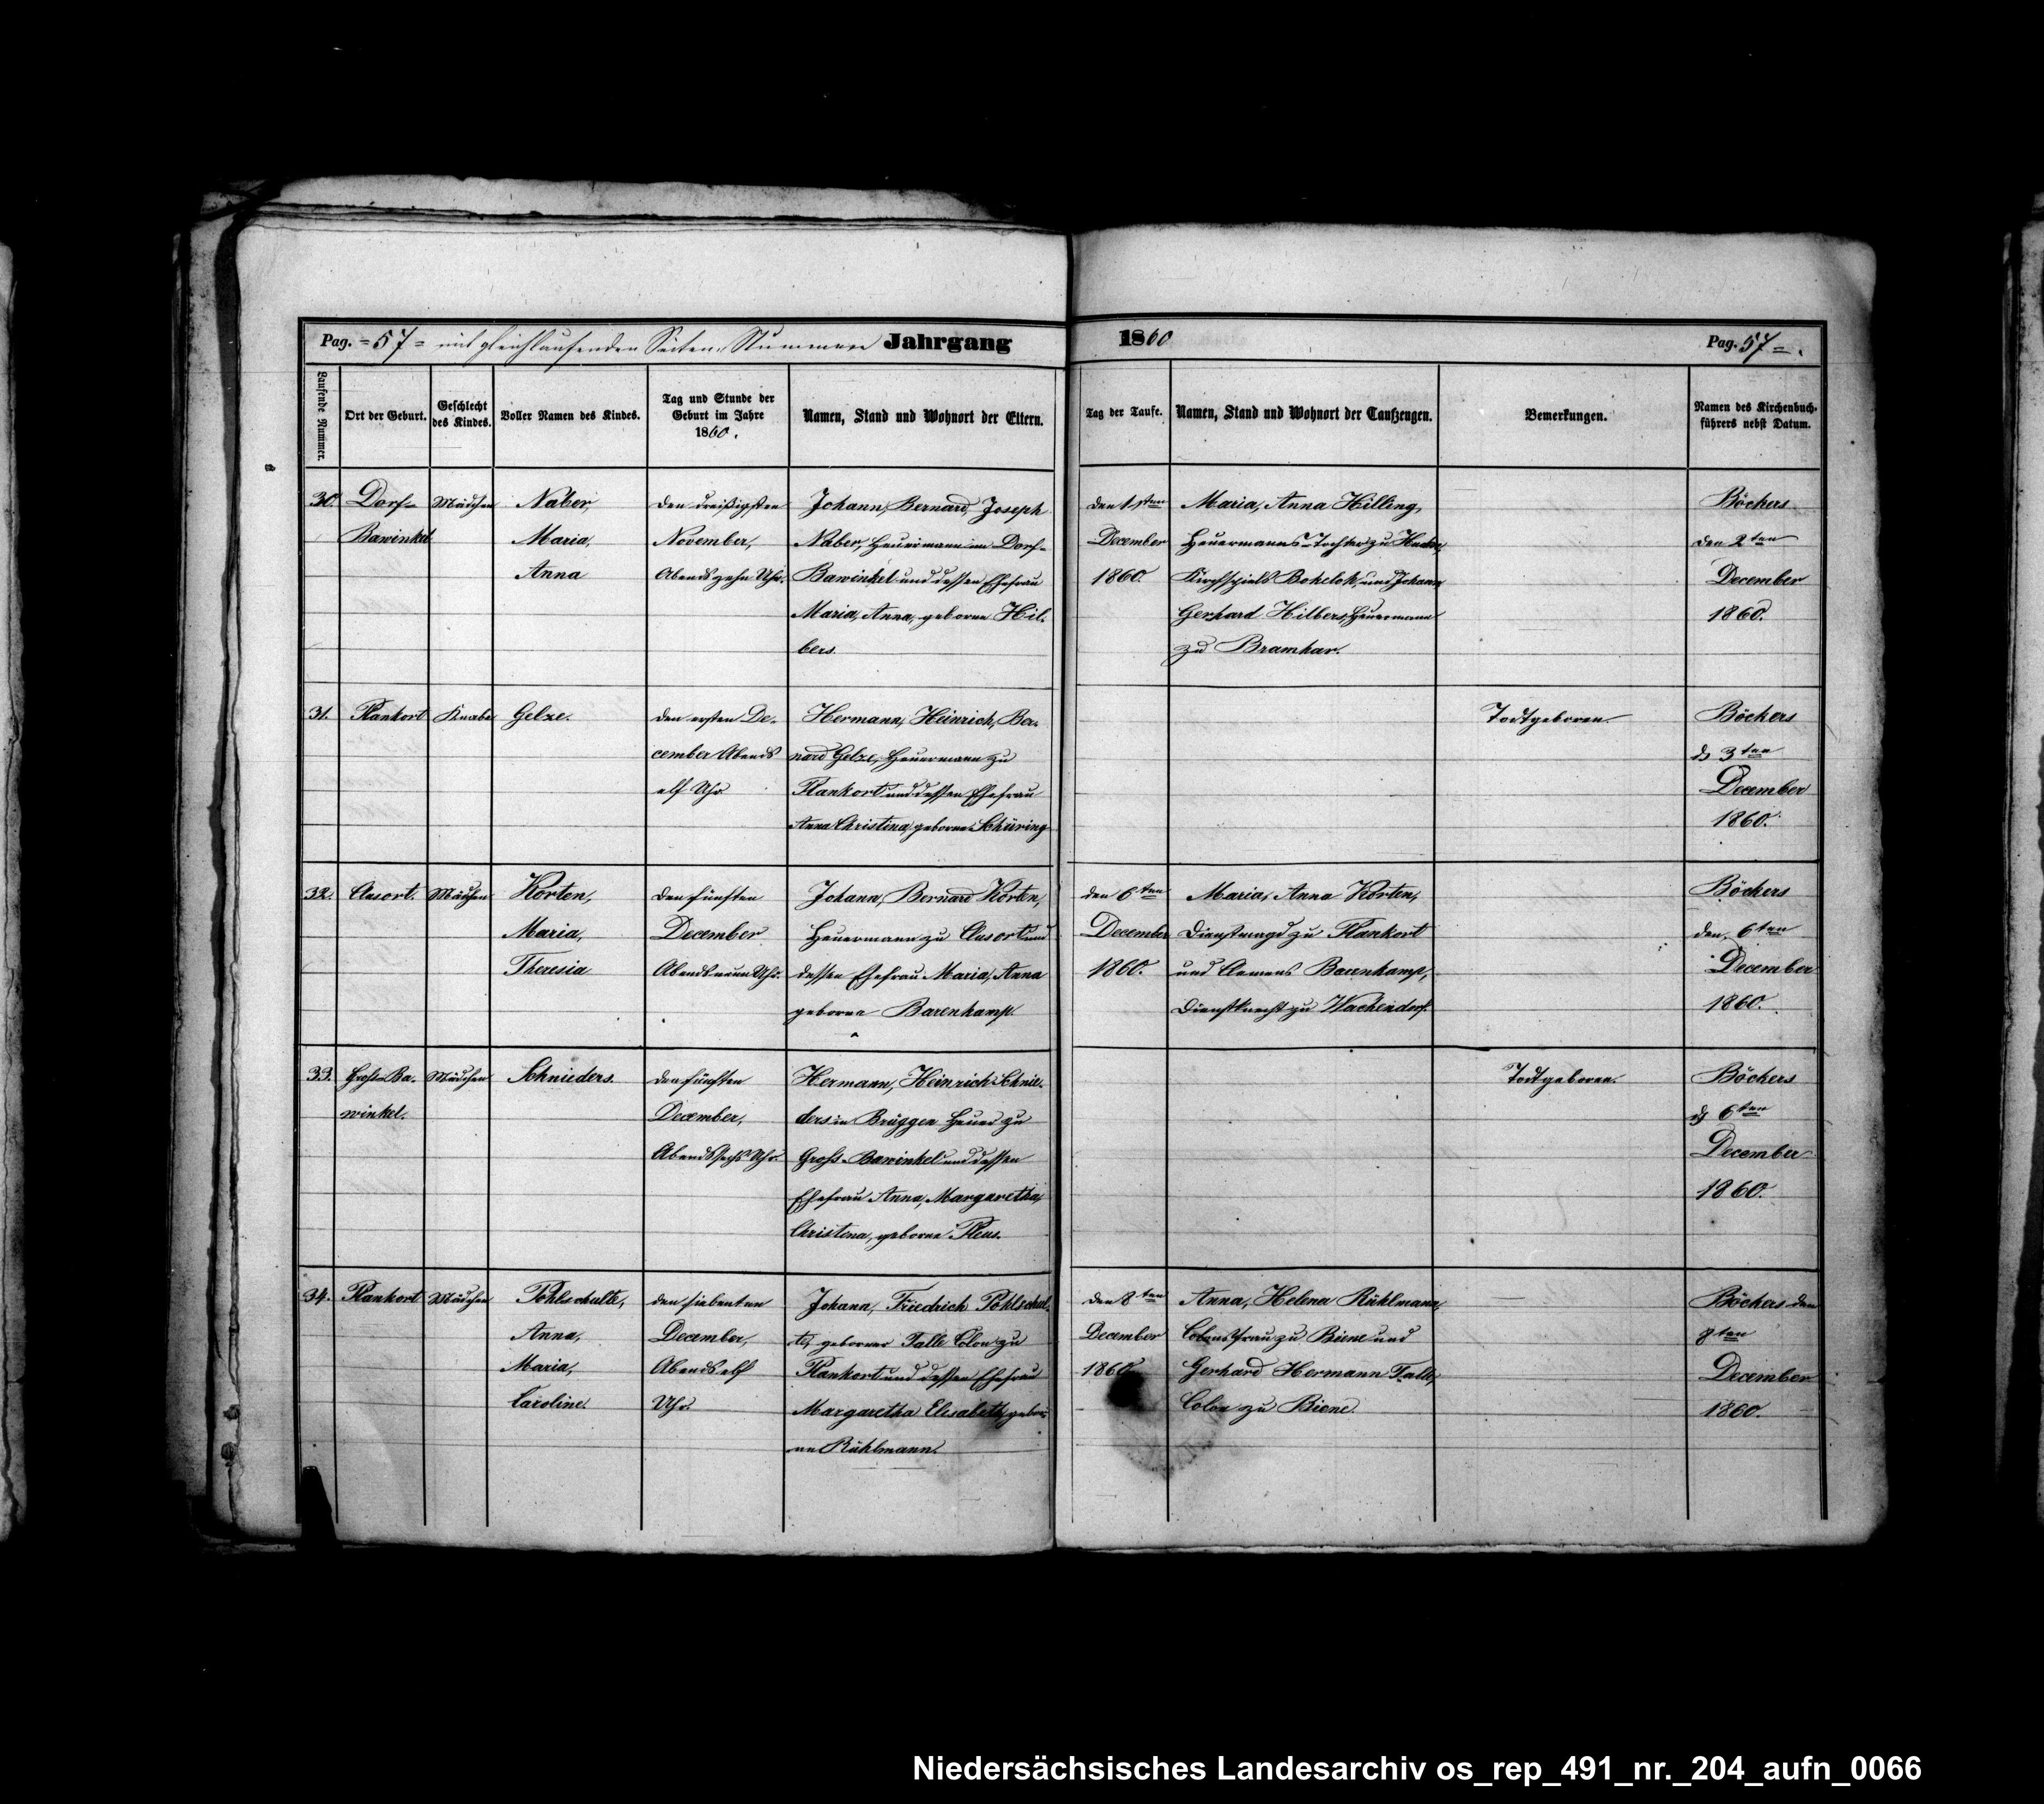 Pag. =57= mit gleichlaufenden Seiten-Nummern Jahrgang 1860 Pag. 57=.
Laufende Nummer.
Ort der Geburt.
Geschlecht
des Kindes.
Voller Namen des Kindes.
Tag und Stunde der
Geburt im Jahre
1860.
Namen, Stand und Wohnort der Eltern.
Tag der Taufe.
Namen, Stand und Wohnort der Taufzeugen.
Bemerkungen.
Namen des Kirchenbuch-
führers nebst Datum.
30.
Dorf-
Bawinkel
Mädchen
Naber,
Maria,
Anna
den dreißigsten
November,
Abends zehn Uhr.
Johann, Bernard, Joseph
Naber, Heuermann im Dorf-
Bawinkel und dessen Ehefrau
Maria, Anna, geborne Hil-
bers.
den 1sten
December
1860.
Maria, Anna Hilling,
Heuermanns-Tochter zu
Kirchspiels Bokeloh, und Johann
Gerhard Hilbers, Heuermann
zu Bramhar.
Böckers
den 2ten
December
1860.
31.
Plankort
Knabe
Gelze.
den ersten De-
cember Abends
elf Uhr
Hermann, Heinrich, Ber-
nard Gelze, Heuermann zu
Plankort und dessen Ehefrau
Anna Christina, geborne Schüring
Todtgeboren
Böckers
d. 3ten
December
1860.
32.
Clusort.
Mädchen
Korten,
Maria,
Theresia
den fünften
December
Abends neun Uhr.
Johann, Bernard Korten,
Heuermann zu Clusort und
dessen Ehefrau Maria, Anna
geborne Barenkamp.
den 6ten
December
1860.
Maria, Anna Korten,
Dienstmagd zu Plankort
und Clemens Barenkamp,
Dienstknecht zu Wachendorf.
Böckers
den 6ten
December
1860.
33.
Groß-Ba-
winkel.
Mädchen
Schnieders.
den fünften
December,
Abends sechs Uhr.
Hermann, Heinrich Schnie-
ders in Brüggen Heuer zu
Groß-Bawinkel und dessen
Ehefrau Anna, Margaretha,
Christina, geborne Pleus.
Todtgeboren.
Böckers
d. 6ten
December
1860.
34.
Plankort
Mädchen
Pohlschulte,
Anna,
Maria,
Caroline
den siebenten
December,
Abends elf
Uhr.
Johann, Friedrich Pohlschul-
te, geborner Talle Colon zu
Plankort und dessen Ehefrau
Margaretha Elisabeth, gebor-
ne Rühlmann.
den 8ten
December
1860
Anna, Helena Rühlmann,
Colonsfrau zu Biene und
Gerhard Hermann Talle,
Colon zu Biene.
Böckers den
8ten
December
1860.
Niedersächsisches Landesarchiv os_rep_491_nr._204_aufn_0066